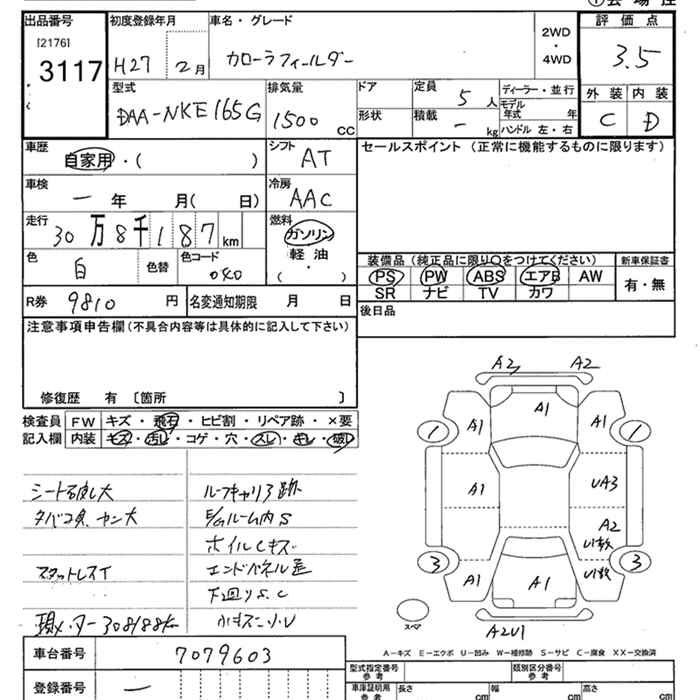 出品番号
[2176]
3117
初度登録年月
H27 2月
車名・グレード
カローラフィールダー
2WD
・
4WD
評価点
3.5
外装 内装
C D
型式
DAA-NKE165G
排気量
1500 CC
ドア
形状
定員 5人
積載 - kg
ディーラー・並行
モデル年式 年
ハンドル 左・右
車歴
自家用・( )
シフト
AT
セールスポイント(正常に機能するものに限ります)
車検
- 年 月( 日)
冷房
AAC
走行
30万8千187km
燃料
ガソリン
軽油
・
( )
色
白
色替
色コード
040
装備品(純正品に限り○をつけてください)
PS PW ABS エアB AW
SR ナビ TV カワ
新車保証書
有・無
R券 9810 円
名変通知期限 月 日
後日品
注意事項申告欄(不具合内容等は具体的に記入して下さい)
修復歴 有 [箇所 ]
検査員
記入欄
FW キズ・飛石・ヒビ割・リペア跡・×要
内装 キズ・汚レ・コゲ・穴・スレ・キレ・破レ
シート破レ大
タバコ臭、ヤニ大
スタットレスT
現メーター308188km
ルーフキャリア跡
E/gルーム内S
ホイルCキズ
エンドパネル歪
下回りS.C
A2 A2
A1
1 A1 A1 1
A1 UA3
A2
U1数
3 3
A1 A1 U1数
スペア
A2U1
A-キズ E-エクボ U-凹み W-補修跡 S-サビ C-腐食 XX-交換済
車台番号 7079603
登録番号 -
型式指定番号
参考
類別区分番号
参考
車庫証明用
参考
長さ cm
幅 cm
高さ cm